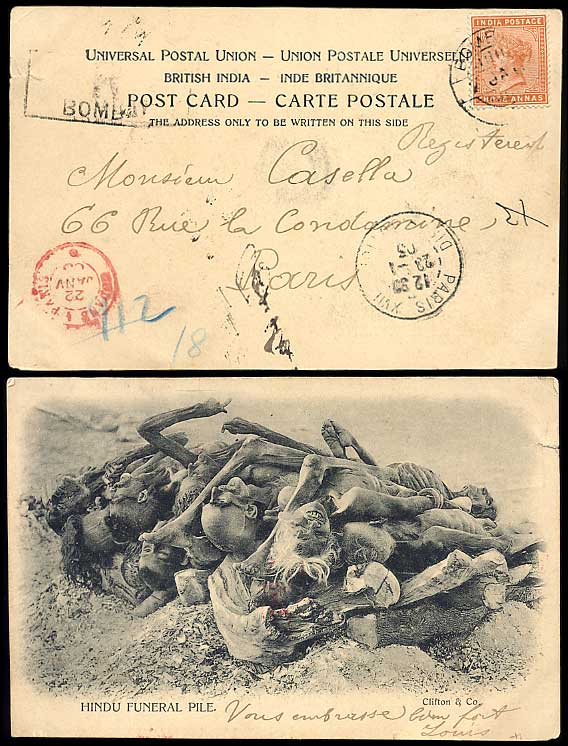 UNIVERSAL POSTAL UNION — UNION POSTALE UNIVERSELLE
BRITISH INDIA — INDE BRITANNIQUE
POST CARD — CARTE POSTALE
THE ADDRESS ONLY TO BE WRITTEN ON THIS SIDE
INDIA POSTAGE
ANNAS
BOMBAY
Registered
Monsieur Casella
66 Rue la Condamine
Paris
PARIS XVII
22
JANV
112
18
HINDU FUNERAL PILE.
Clifton & Co.
Vous embrasse bien fort
Louis